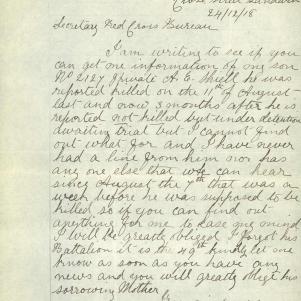 Cross Street
24/12/18
Secretary Red Cross Bureau
I am writing to see if you
can get one information of my son
No 2127 private A. E. Shiell he was
reported killed on the 11th of August
last and now 3 months after he is
reported not killed but under detention
awaiting trial but I cannot find
out what for and I have never
had a line from him nor has
any one else that we can hear
since August the 7th that was a
week before he was supposed to be
killed so if you can find out
anything for me to ease my mind
I will be greatly obliged I forgot his
Battalion it is the 49th kindly let me
know as soon as you have any
news and you will greatly oblige his
sorrowing Mother